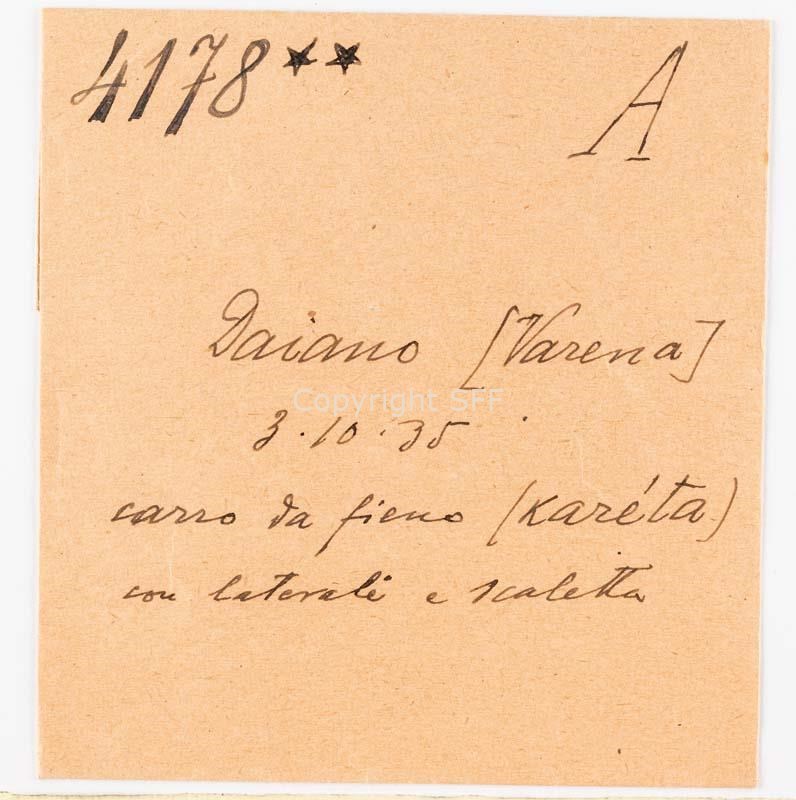 4178** A
Daiano [Varena]
Copyright SFF
3.10.35
carro da fieno (karéta)
con laterali e scaletta